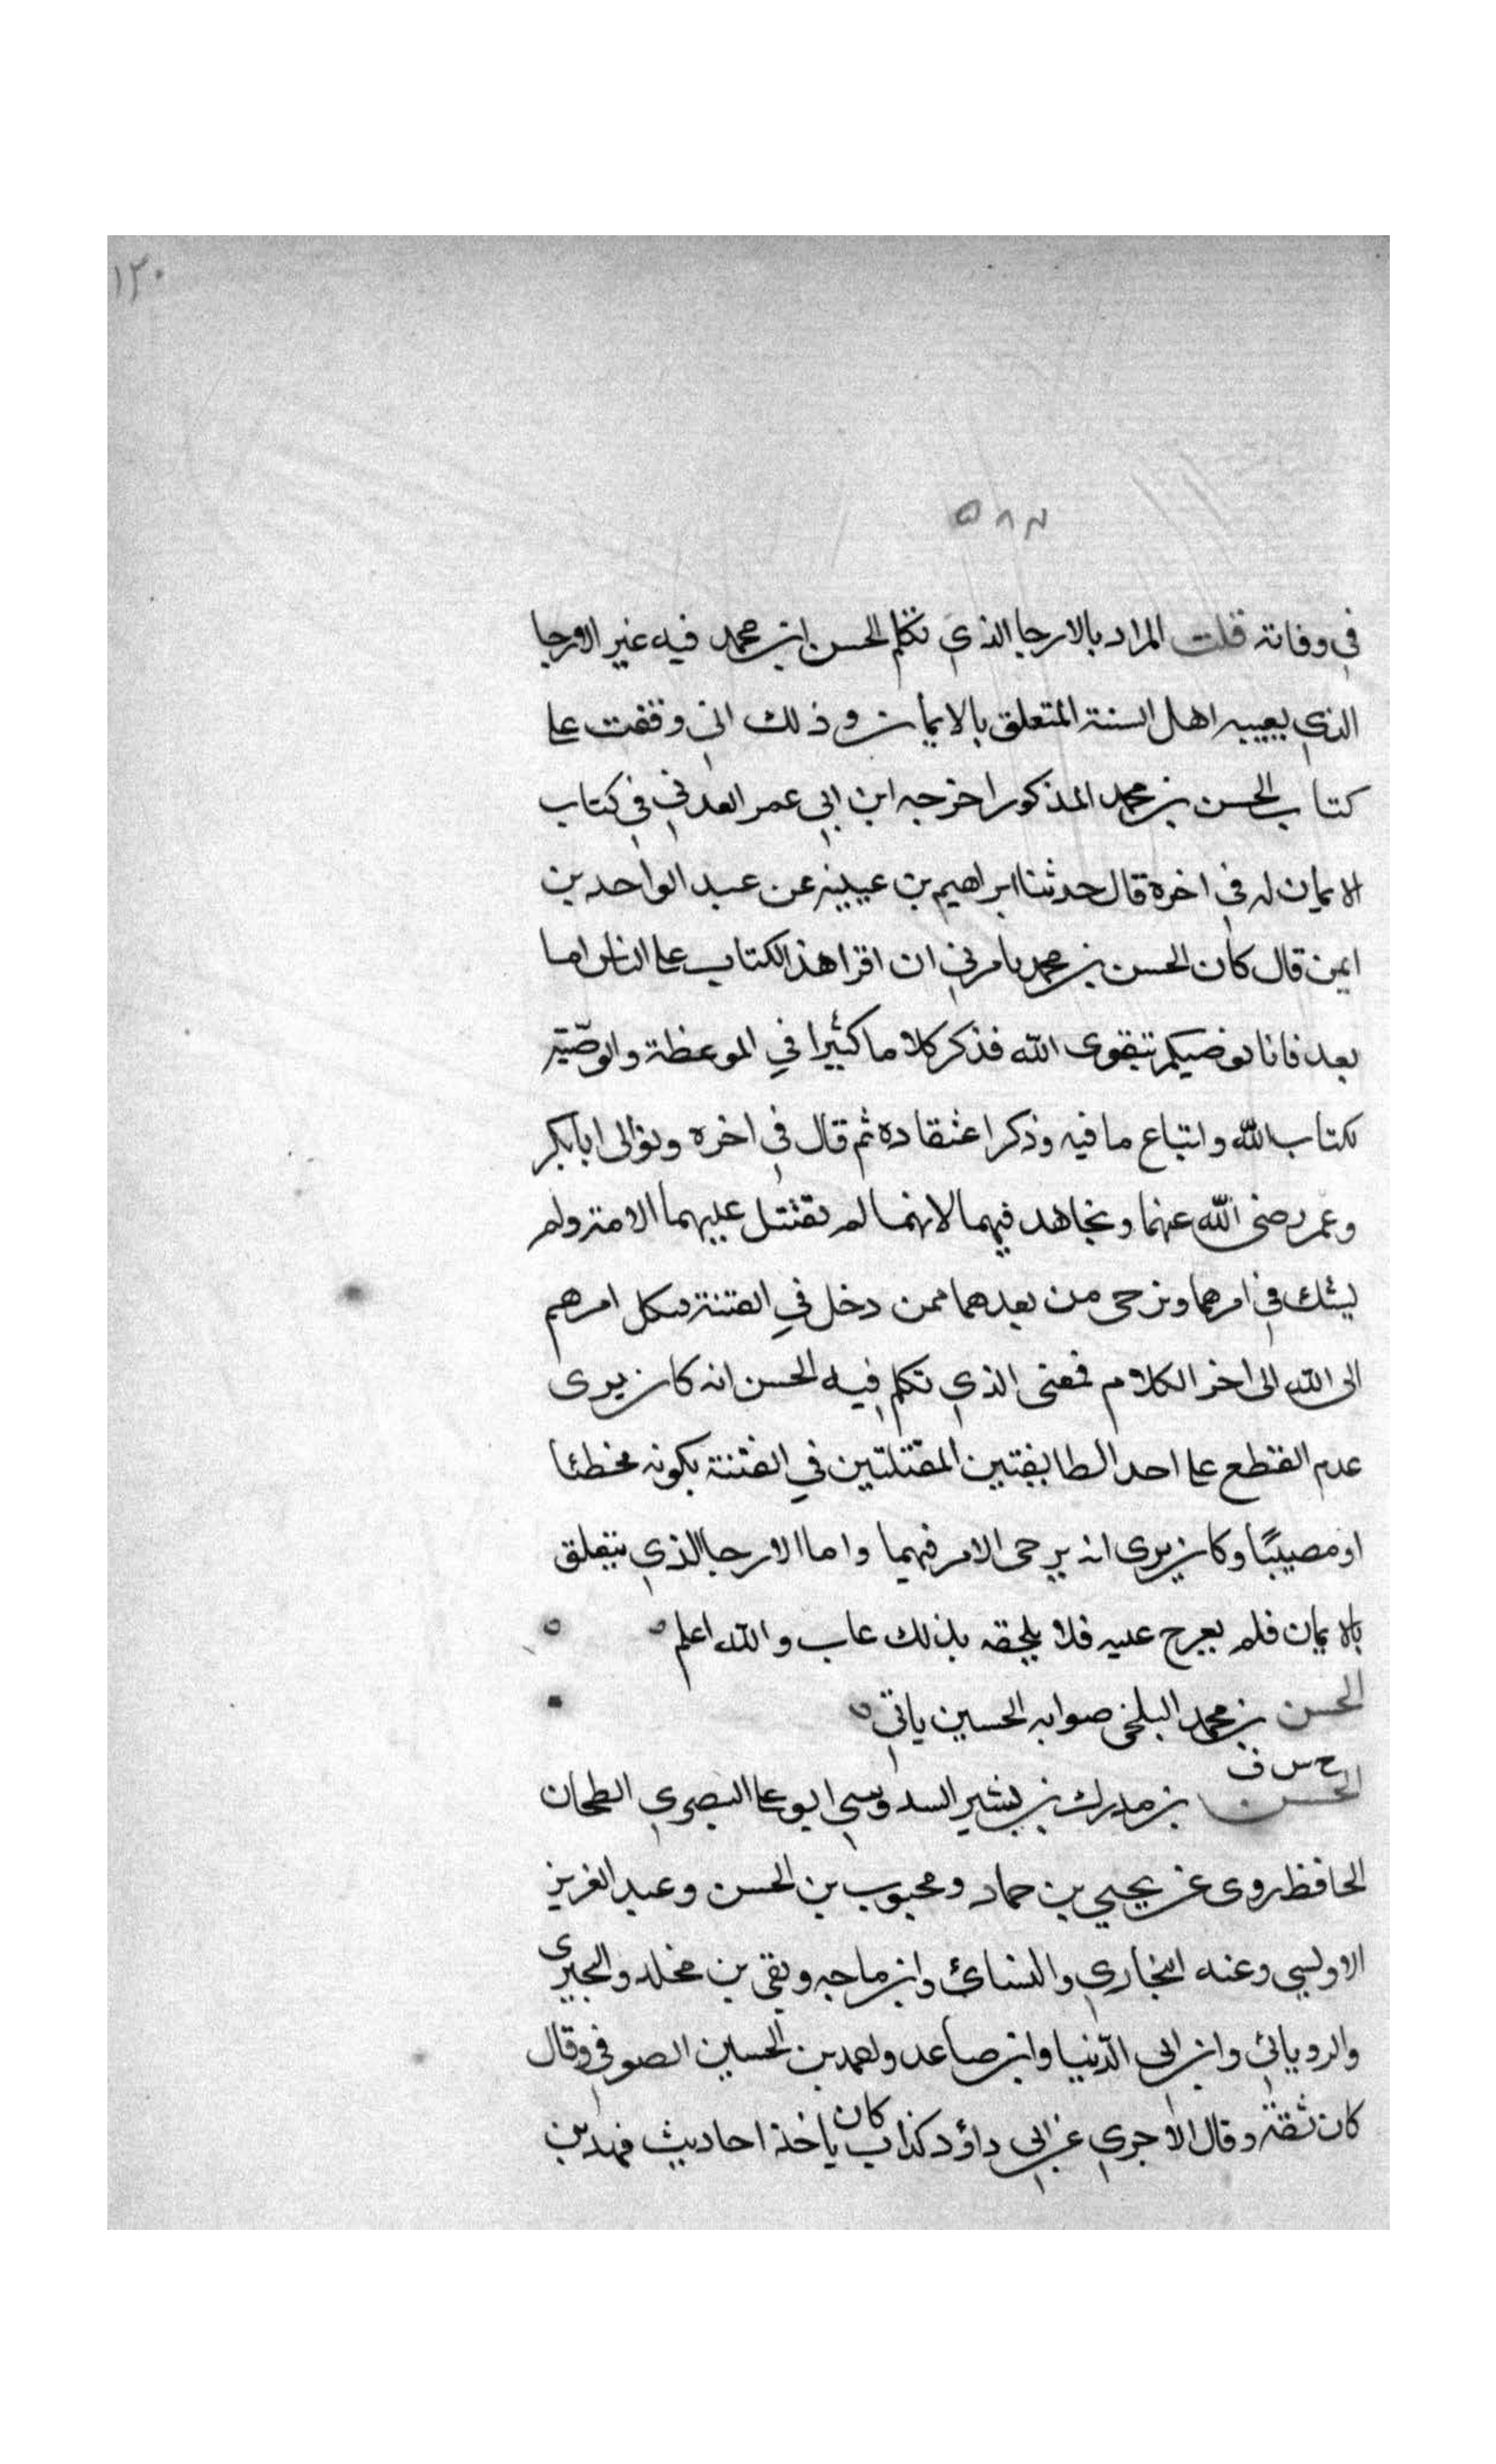 ١٢٠
في وفاته قلت المراد بالارجا الذي تكلم الحسن ابن محمد فيه غير الارجا
الذي يعيبه اهل السنة المتعلق بالايمان وذلك اني وقفت على
كتاب الحسن بن محمد المذكور اخرجه ابن ابي عمر العدني في كتاب
الايمان له في اخره قال حدثنا ابراهيم بن عيينه عن عبد الواحد بن
ايمن قال كان الحسن بن محمد يامرني ان اقرا هذا الكتاب على الناس اما
بعد فانا نوصيكم بتقوى الله فذكر كلاما كثيرا في الموعظة والوصّية
بكتاب الله واتباع ما فيه وذكر اعتقاده ثم قال في اخره ونوالى ابا بكر
وعمر رضى الله عنهما ونجاهد فيهما لانهما لم تقتتل عليهما الامة ولم
يشك في امرهما ونرجى من بعدهما ممن دخل في الفتنة فنكل امرهم
الى الله الى اخر الكلام فمعنى الذي تكلم فيه الحسن انه كان يرى
عدم القطع على احد الطايفتين المقتتلتين في الفتنة بكونه مخطئا
او مصيبًا وكان يرى انه يرجى الامر فيهما واما الارجا الذي يتعلق
بالايمان فلم يعرج عليه فلا يلحقه بذلك عاب والله اعلم ه ه
الحسن بن محمد البلخى صوابه الحسين ياتي ه
خ س ق
الحسن بن مدرك بن بشير السدوسي ابو على البصري الطحان
الحافظ روى عن يحيي بن حماد ومحبوب بن الحسن وعبد العزيز
الاويسي وعنه البخاري والنسائ وابن ماجه وبقي بن مخلد والبجيرى
والرويانى وابن ابى الدّنيا وابن صاعد واحمد بن الحسين الصوفي وقال
كان ثقة وقال الاجري عن ابى داؤد كذاب كان ياخذ احاديث فهد بن